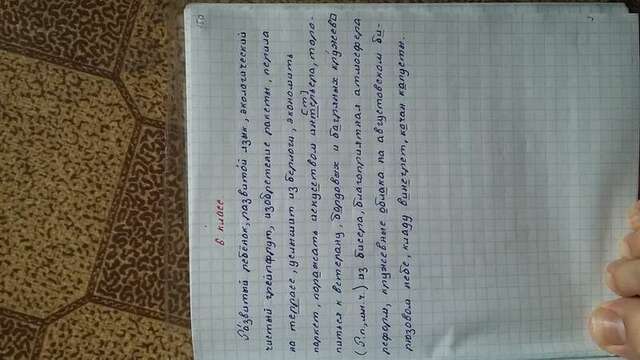 150
6 класс
Ра́звитый ребёнок, развито́й язык, экологический
чистый грейпфрут, изобретение ракеты, перила
на террасе, услышит из берлоги, экономить
паркет, поражать искусством интерьера, торо-
[т]
питься к ветерану, бордовых и багряных кружев□
(Р.п., мн.ч.) из бисера, благоприятная атмосфера
реформ, кружевные облака на августовском би-
рюзовом небе, кладу винегрет, кочан капусты.